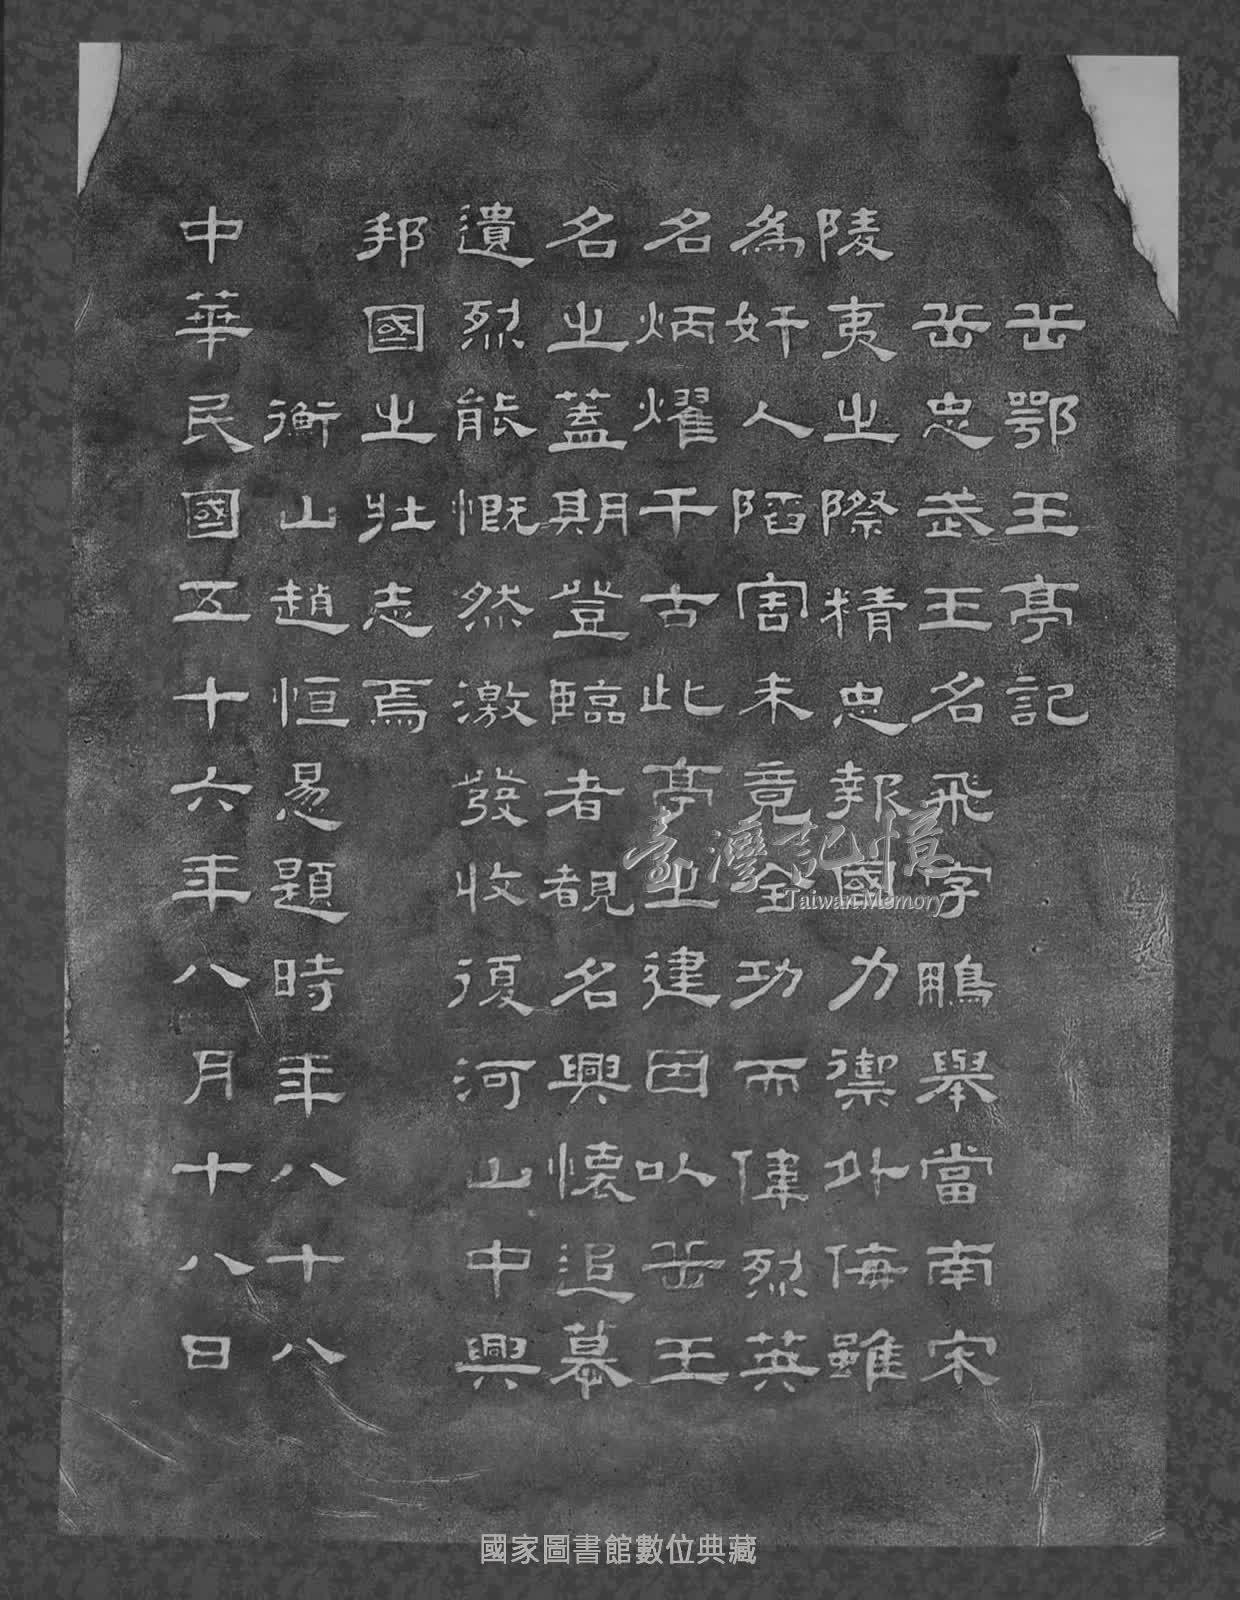 岳鄂王亭記
岳忠武王名飛字鵬舉當南宋
陵夷之際精忠報國力禦外侮雖
為奸人陷害未竟全功而偉烈英
名炳耀千古此亭之建因以岳王
名之蓋期登臨者覩名興懷追慕
遺烈能慨然激發收復河山中興
邦國之壯志焉
衡山趙恒惖題時年八十八
中華民國五十六年八月十八日
臺灣記憶
Taiwan Memory
國家圖書館數位典藏